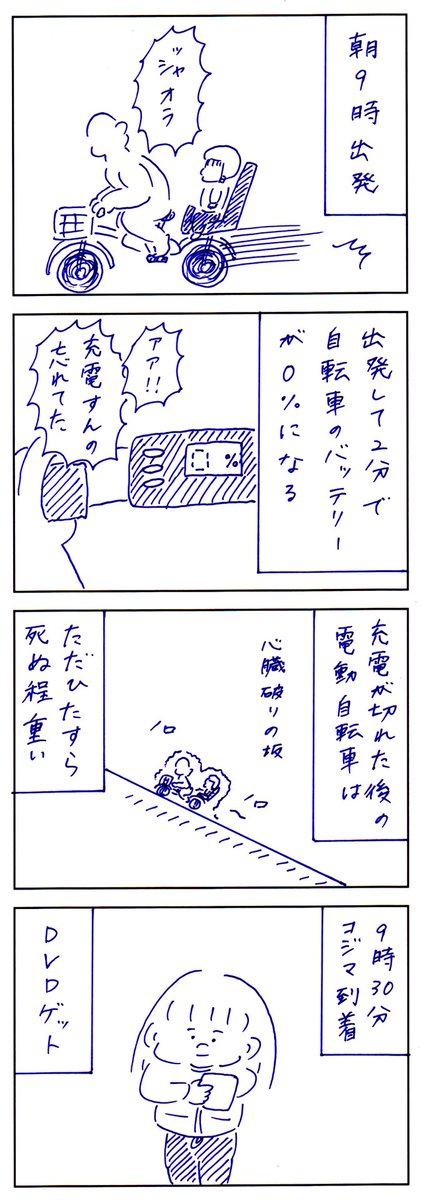 朝9時出発
ッシャオラ
出発して2分で
自転車のバッテリー
が0%になる
アア!!
充電すんの
忘れてた
0%
充電が切れた後の
電動自転車は
心臓破りの坂
ただひたすら
死ぬ程重い
9時30分
コジマ到着
DVDゲット